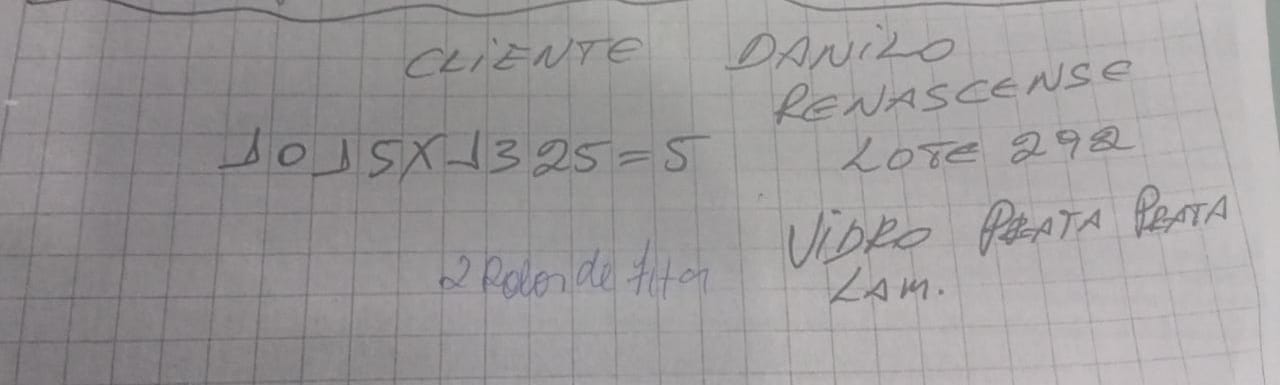 CLIENTE DANILO
RENASCENSE
1015X1325=5 LOTE 292
VIDRO PRATA PRATA
2 Rolos de fita
LAM.